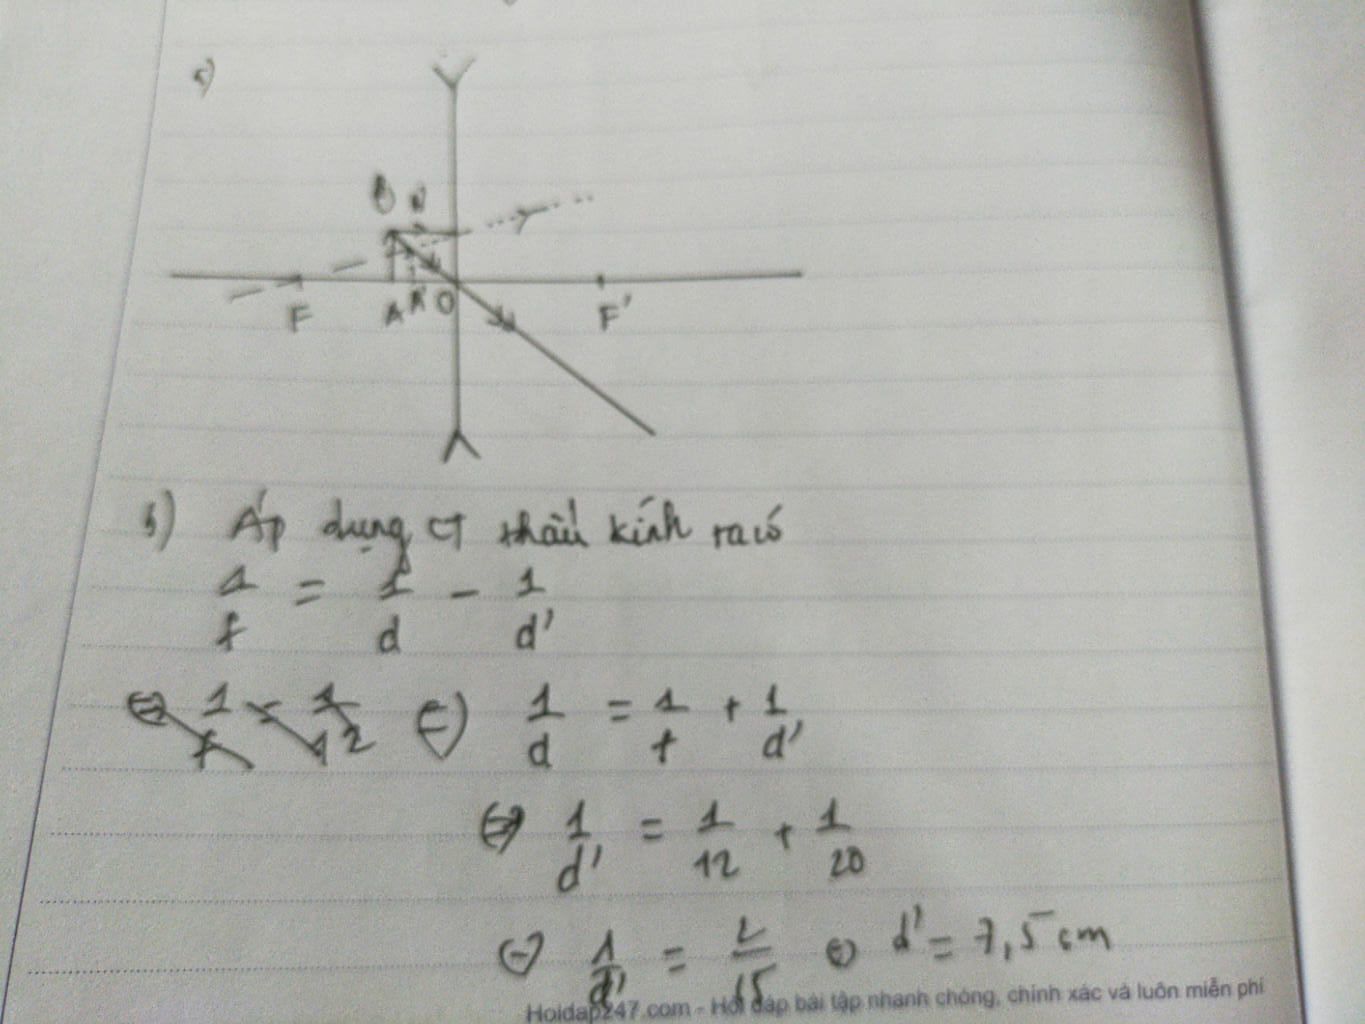 B B'
F A A' O F'
b) Áp dụng CT thấu kính ta có
1/f = 1/d - 1/d'
⇔ 1/f = 1/12 ⇔ 1/d = 1/f + 1/d'
⇔ 1/d' = 1/12 + 1/20
⇔ 1/d' = 2/15 ⇔ d' = 7,5 cm
Hoidap247.com - Hỏi đáp bài tập nhanh chóng, chính xác và luôn miễn phí